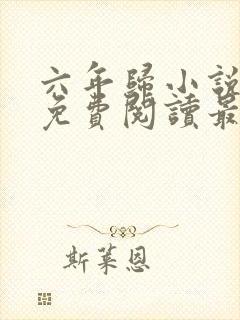 六年歸小說
免費閱讀最
斯萊恩